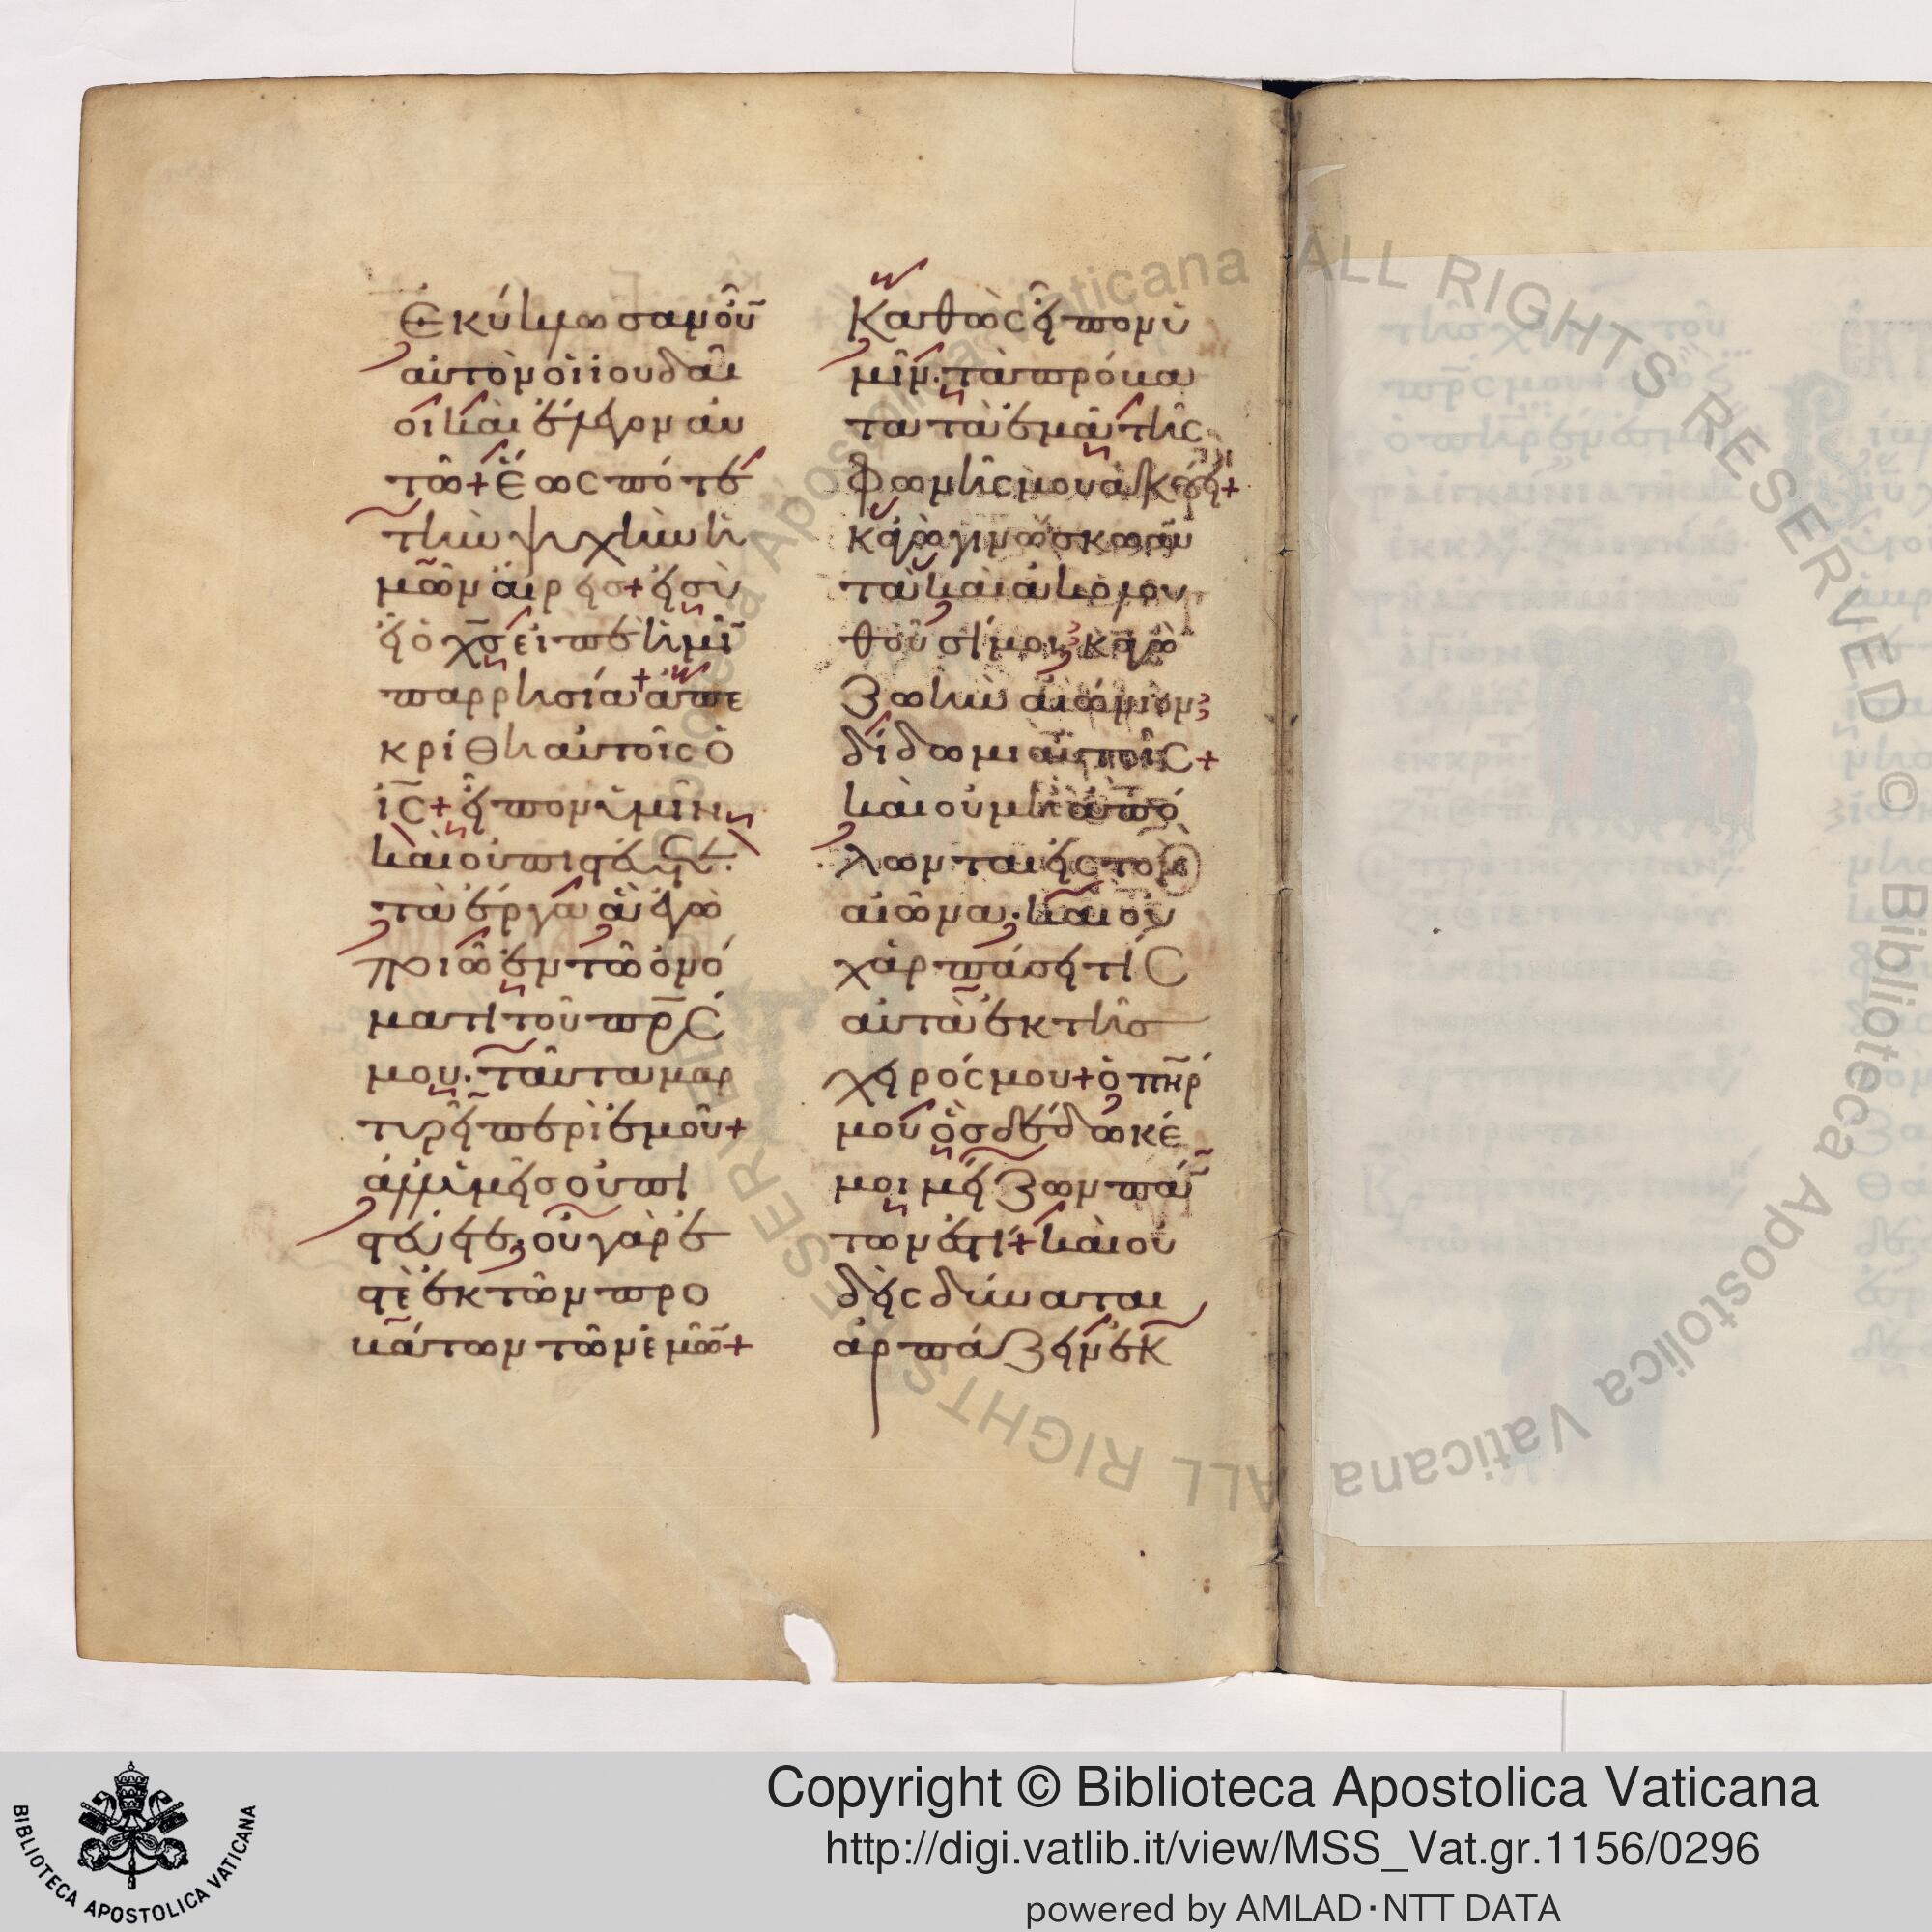 Ἐκύκλωσαν οὖ̄
αὐτὸν οἱ ἰουδαῖ
οι καὶ ἔλεγον αὐ
τῶ + ἕως πότε
τὴν ψυχὴν ἡ
μῶν αἴρεις + εἰ σὺ
εἶ ὁ χ̅ς̅ εἰπὲ ἡμῖ̄
παρρησία + ἀπε
κρίθη αὐτοῖς ὁ
ι̅ς̅ + εἶπον ὑμῖν
καὶ οὐ πιστεύετε.
τὰ ἔργα ἃ ἐγὼ
ποιῶ ἐν τῶ ὀνό
ματι τοῦ π̅ρ̅ς̅
μου. ταῦτα μαρ
τυρεῖ περὶ ἐμοῦ +
ἀλλ' ὑμεῖς οὐ πι
στεύετε. οὐ γάρ ἐ
στὲ ἐκ τῶν προ
βάτων τῶν ἐμῶ̄ +
Καθὼς εἶπον ὑ
μῖν. τὰ πρόβα
τα τὰ ἐμὰ τῆς
φωνῆς μου ἀκούει +
κἀγὼ γινώσκω αὐ
τὰ καὶ ἀκολου
θοῦσί μοι κἀγὼ
ζωὴν αἰώνιον
δίδωμι αὐτοῖς +
καὶ οὐ μὴ ἀπό
λωνται εἰς τὸν
αἰῶνα. καὶ οὐ
χ ἁρπάσει τὶς
αὐτὰ ἐκ τῆς
χειρός μου + ὁ π̅η̅ρ̅
μου ὃς δέδωκέ
μοι μείζων πά̄
των ἐστί + καὶ οὐ
δεὶς δύναται
ἁρπάζειν ἐκ
ALL RIGHTS RESERVED © Biblioteca Apostolica Vaticana
Copyright © Biblioteca Apostolica Vaticana
http://digi.vatlib.it/view/MSS_Vat.gr.1156/0296
powered by AMLAD·NTT DATA
BIBLIOTECA APOSTOLICA VATICANA